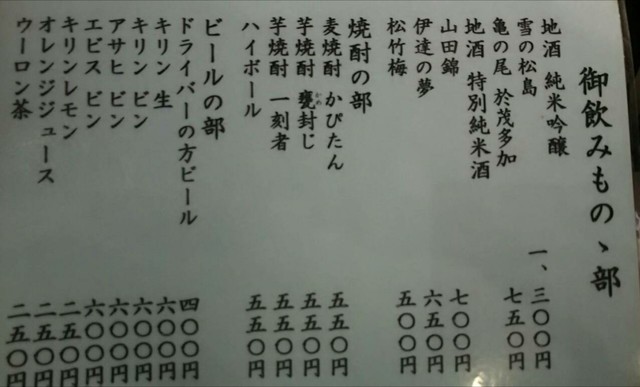 御飲みものゝ部
地酒 純米吟醸
雪の松島 一、三〇〇円
亀の尾 於茂多加 七五〇円
地酒 特別純米酒
山田錦 七〇〇円
伊達の夢 六五〇円
松竹梅 五〇〇円
焼酎の部
麦焼酎 かぴたん 五五〇円
芋焼酎 甕封じ 五五〇円
かめ
芋焼酎 一刻者 五五〇円
ハイボール 五五〇円
ビールの部
ドライバーの方ビール 四〇〇円
キリン 生 六〇〇円
キリン ビン 六〇〇円
アサヒ ビン 六〇〇円
エビス ビン 六〇〇円
キリンレモン 二五〇円
オレンジジュース 二五〇円
ウーロン茶 二五〇円